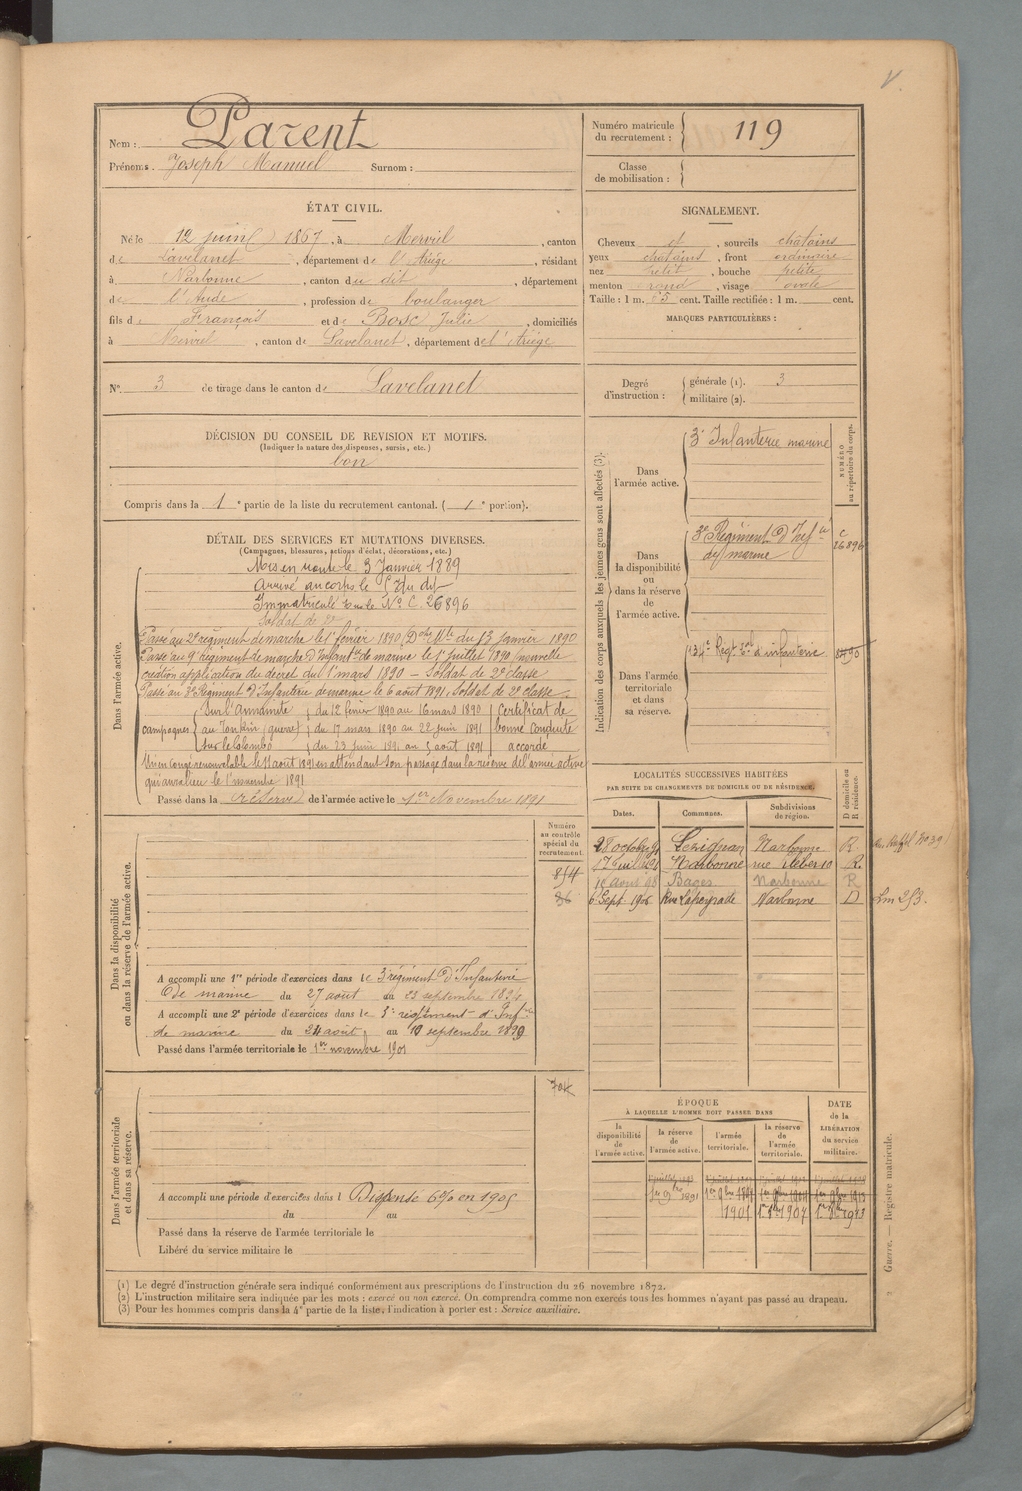 Nom : Parent
Prénoms. Joseph Manuel Surnom :
Numéro matricule du recrutement : 119
Classe de mobilisation :
ÉTAT CIVIL.
Né le 12 juin 1867, à Merviel, canton
de Lavelanet, département de l'Ariège, résidant
à Narbonne, canton du dit, département
de l'Aude, profession de boulanger
fils de François et de Bosc Julie, domiciliés
à Merviel, canton de Lavelanet, département de l'Ariège
No. 3 de tirage dans le canton de Lavelanet
SIGNALEMENT.
Cheveux et, sourcils châtains
yeux châtains, front ordinaire
nez petit, bouche petite
menton rond, visage ovale
Taille : 1 m. 65 cent. Taille rectifiée : 1 m. cent.
MARQUES PARTICULIÈRES :
Degré d'instruction : générale (1). 3
militaire (2).
DÉCISION DU CONSEIL DE REVISION ET MOTIFS.
(Indiquer la nature des dispenses, sursis, etc.)
bon
Compris dans la 1e partie de la liste du recrutement cantonal. (1e portion).
DÉTAIL DES SERVICES ET MUTATIONS DIVERSES.
(Campagnes, blessures, actions d'éclat, décorations, etc.)
Dans l'armée active.
Mis en route le 3 Janvier 1889
Arrivé au corps le 5 du dit
Immatriculé sous le No C. 26896
Soldat de 2e
Passé au 2e régiment de marche le 1er février 1890 (Dche Mlle du 13 Janvier 1890
Passé au 9e régiment de marche d'Infantie de marine le 1er Juillet 1890 (nouvelle
création application du décret du 1er mars 1890 — Soldat de 2e classe
Passé au 3e Régiment d'Infanterie de marine le 6 août 1891. Soldat de 2e classe.
campagnes
Sur l'Annamite du 12 février 1890 au 16 mars 1890
au Tonkin (guerre) du 17 mars 1890 au 22 juin 1891
sur le Colombo du 23 juin 1891 au 5 août 1891
Certificat de
bonne conduite
accordé
en congé renouvelable le 11 août 1891 en attendant son passage dans la réserve de l'armée active
qui aura lieu le 1er novembre 1891
Passé dans la réserve de l'armée active le 1er Novembre 1891
Indication des corps auxquels les jeunes gens sont affectés (3).
NUMÉRO au répertoire du corps.
Dans l'armée active.
3e Infanterie marine
Dans la disponibilité ou dans la réserve de l'armée active.
3e Régiment d'Infie
de marine
C 26896
Dans l'armée territoriale et dans sa réserve.
134e Regt Tal d'infanterie
LOCALITÉS SUCCESSIVES HABITÉES
PAR SUITE DE CHANGEMENTS DE DOMICILE OU DE RÉSIDENCE.
D domicile ou R résidence.
Dates. Communes. Subdivisions de région.
28 octobre 91 Lézignan Narbonne R.
17 Narbonne rue Kléber 10 R.
août 98 Bages Narbonne R
6 Sept 1906 Rue Lapeyrade Narbonne D
Dans la disponibilité ou dans la réserve de l'armée active.
Numéro au contrôle spécial du recrutement.
854
86
A accompli une 1re période d'exercices dans le 3e régiment d'Infanterie
de marine du 27 août au 23 septembre 1894
A accompli une 2e période d'exercices dans le 3e régiment d'Infie
de marine du 24 août au 19 septembre 1899
Passé dans l'armée territoriale le 1er novembre 1901
Dans l'armée territoriale et dans sa réserve.
A accompli une période d'exercices dans l Dispensé 6% en 1905
du au
Passé dans la réserve de l'armée territoriale le
Libéré du service militaire le
ÉPOQUE
À LAQUELLE L'HOMME DOIT PASSER DANS
la disponibilité de l'armée active.
la réserve de l'armée active.
l'armée territoriale.
la réserve de l'armée territoriale.
DATE de la LIBÉRATION du service militaire.
1er 9bre 1891
1901 1907 1913
Guerre. — Registre matricule.
(1) Le degré d'instruction générale sera indiqué conformément aux prescriptions de l'instruction du 26 novembre 1872.
(2) L'instruction militaire sera indiquée par les mots : exercé ou non exercé. On comprendra comme non exercés tous les hommes n'ayant pas passé au drapeau.
(3) Pour les hommes compris dans la 4e partie de la liste, l'indication à porter est : Service auxiliaire.